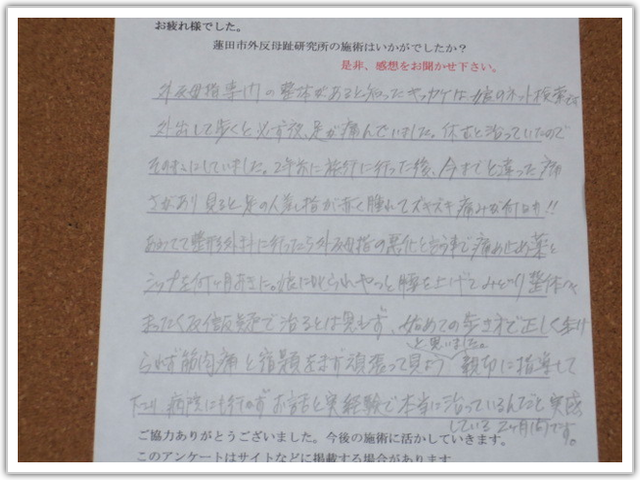 お疲れ様でした。
蓮田市外反母趾研究所の施術はいかがでしたか？
是非、感想をお聞かせ下さい。
外反母指専門の整体があると知ったキッカケは娘のネット検索です
外出して歩くと必ず夜、足が痛んでいました。休むと治っていたので
そのままにしていました。2年前に旅行に行った後、今までと違った痛
さがあり見ると足の人差し指が赤く腫れてズキズキ痛みが何日も!!
あわてて整形外科に行ったら外反母指の悪化と言う事で痛み止め薬と
シップを何ヶ月も。娘に叱られやっと腰を上げてみどり整体へ
まったく反信反疑で治るとは思もず、始めての歩き方で正しく歩け
と思いました。
られず筋肉痛と宿題をまず頑張って見よう 親切に指導して
下さり 病院にも行かず お話と実経験で本当に治っているんだと実感
している2ヶ月間です。
ご協力ありがとうございました。今後の施術に活かしていきます。
このアンケートはサイトなどに掲載する場合があります